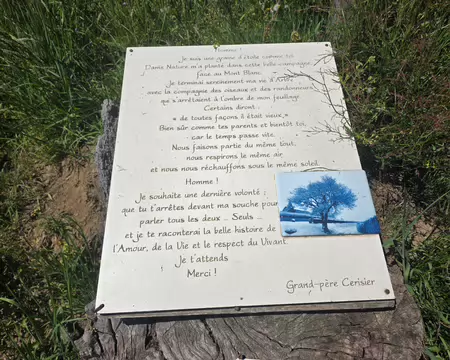 Homme !
Je suis une graine d'étoile comme toi.
Dame Nature m'a planté dans cette belle campagne,
face au Mont Blanc.
Je terminai sereinement ma vie d'Arbre
avec la compagnie des oiseaux et des randonneurs
qui s'arrêtaient à l'ombre de mon feuillage.
Certains diront :
« de toutes façons il était vieux »
Bien sûr comme tes parents et bientôt toi,
car le temps passe vite.
Nous faisons partie du même tout,
nous respirons le même air
et nous nous réchauffons sous le même soleil.
Homme !
Je souhaite une dernière volonté :
que tu t'arrêtes devant ma souche pour
parler tous les deux ... Seuls ...
et je te raconterai la belle histoire de
l'Amour, de la Vie et le respect du Vivant.
Je t'attends
Merci !
Grand-père Cerisier